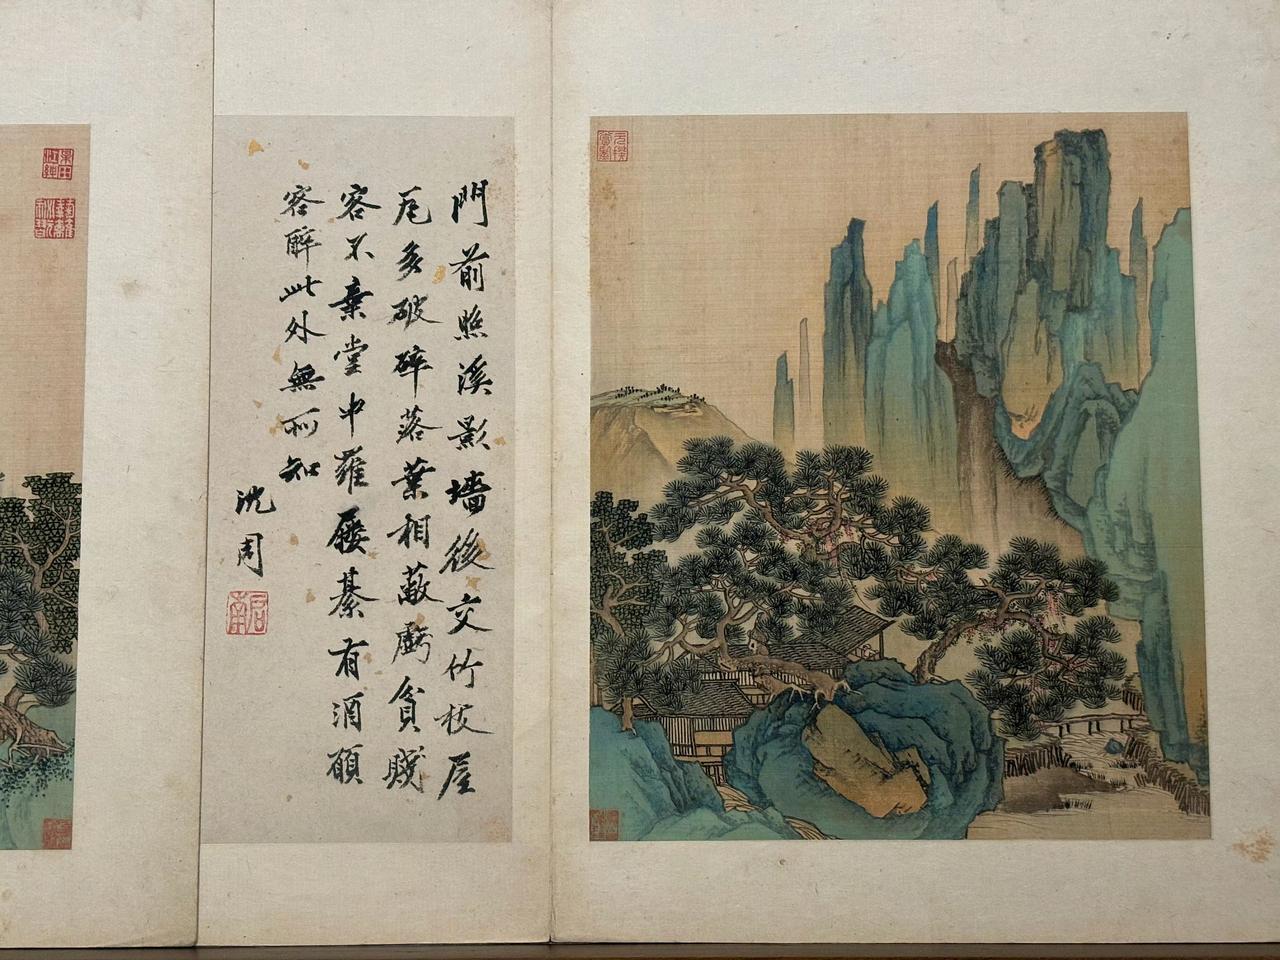 門前照溪影墻後交竹枝屋
瓦多破碎落葉相蔽虧貧賤
客不棄堂中羅屨綦有酒願
客醉此外無所知
沈周
启南